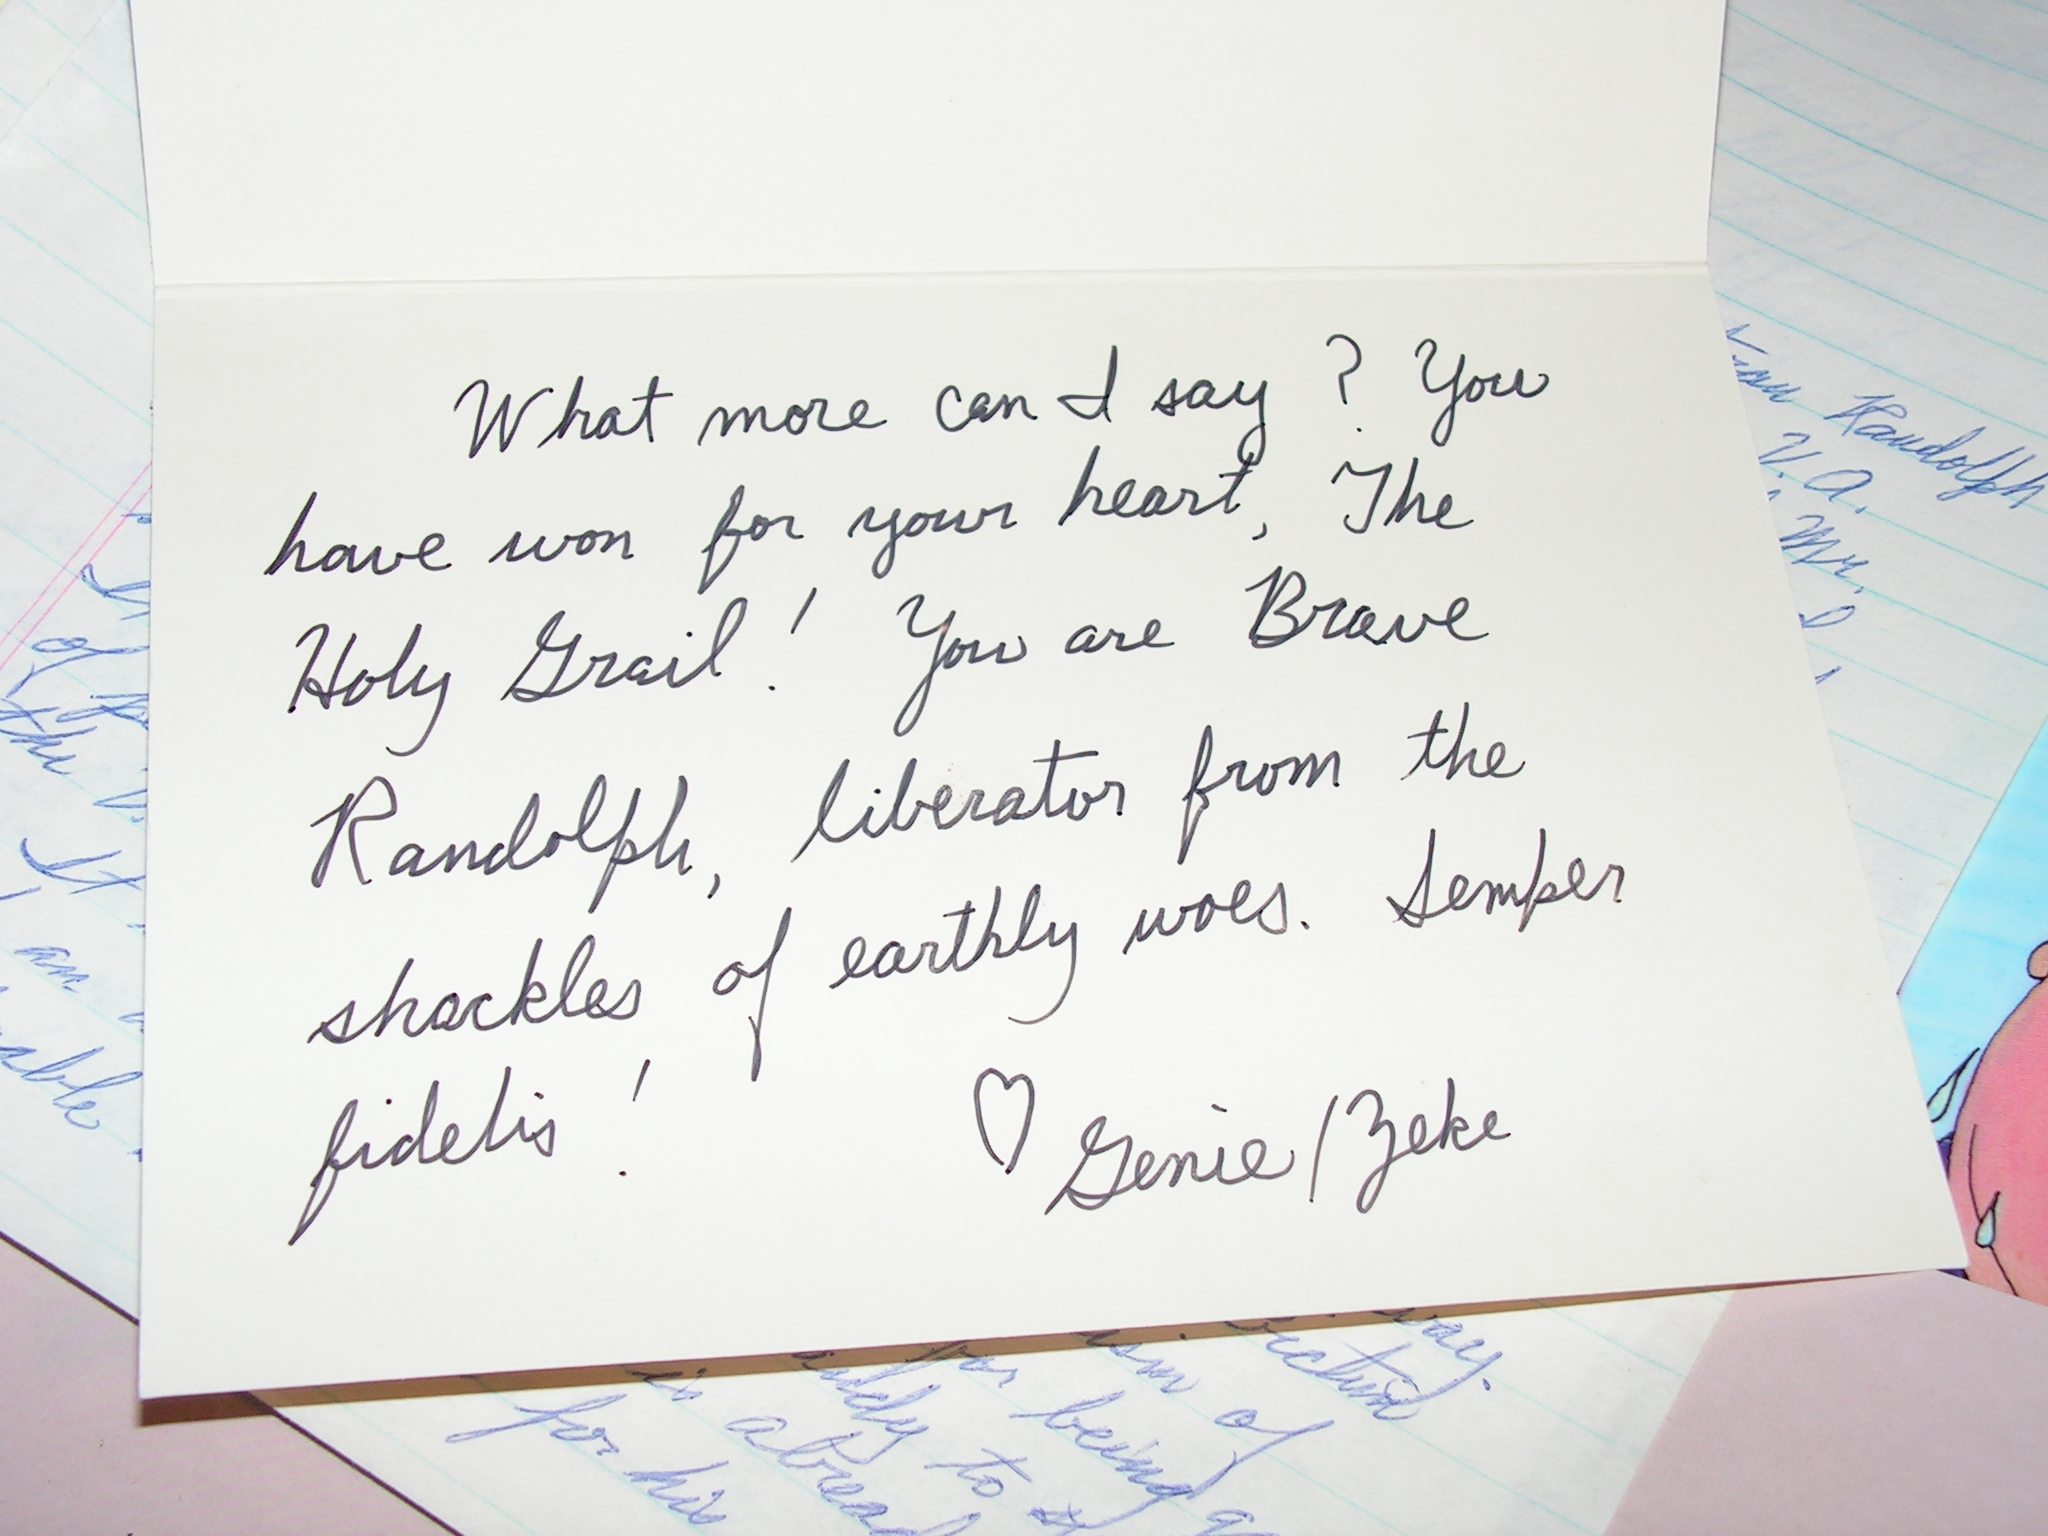 What more can I say? You
have won for your heart, The
Holy Grail! You are Brave
Randolph, liberator from the
shackles of earthly woes. Semper
fidelis!
♡ Genie/Zeke
Randolph
V.A.
Mr.
of
the
It
I am
able
say.
of
for being
to
is
for his